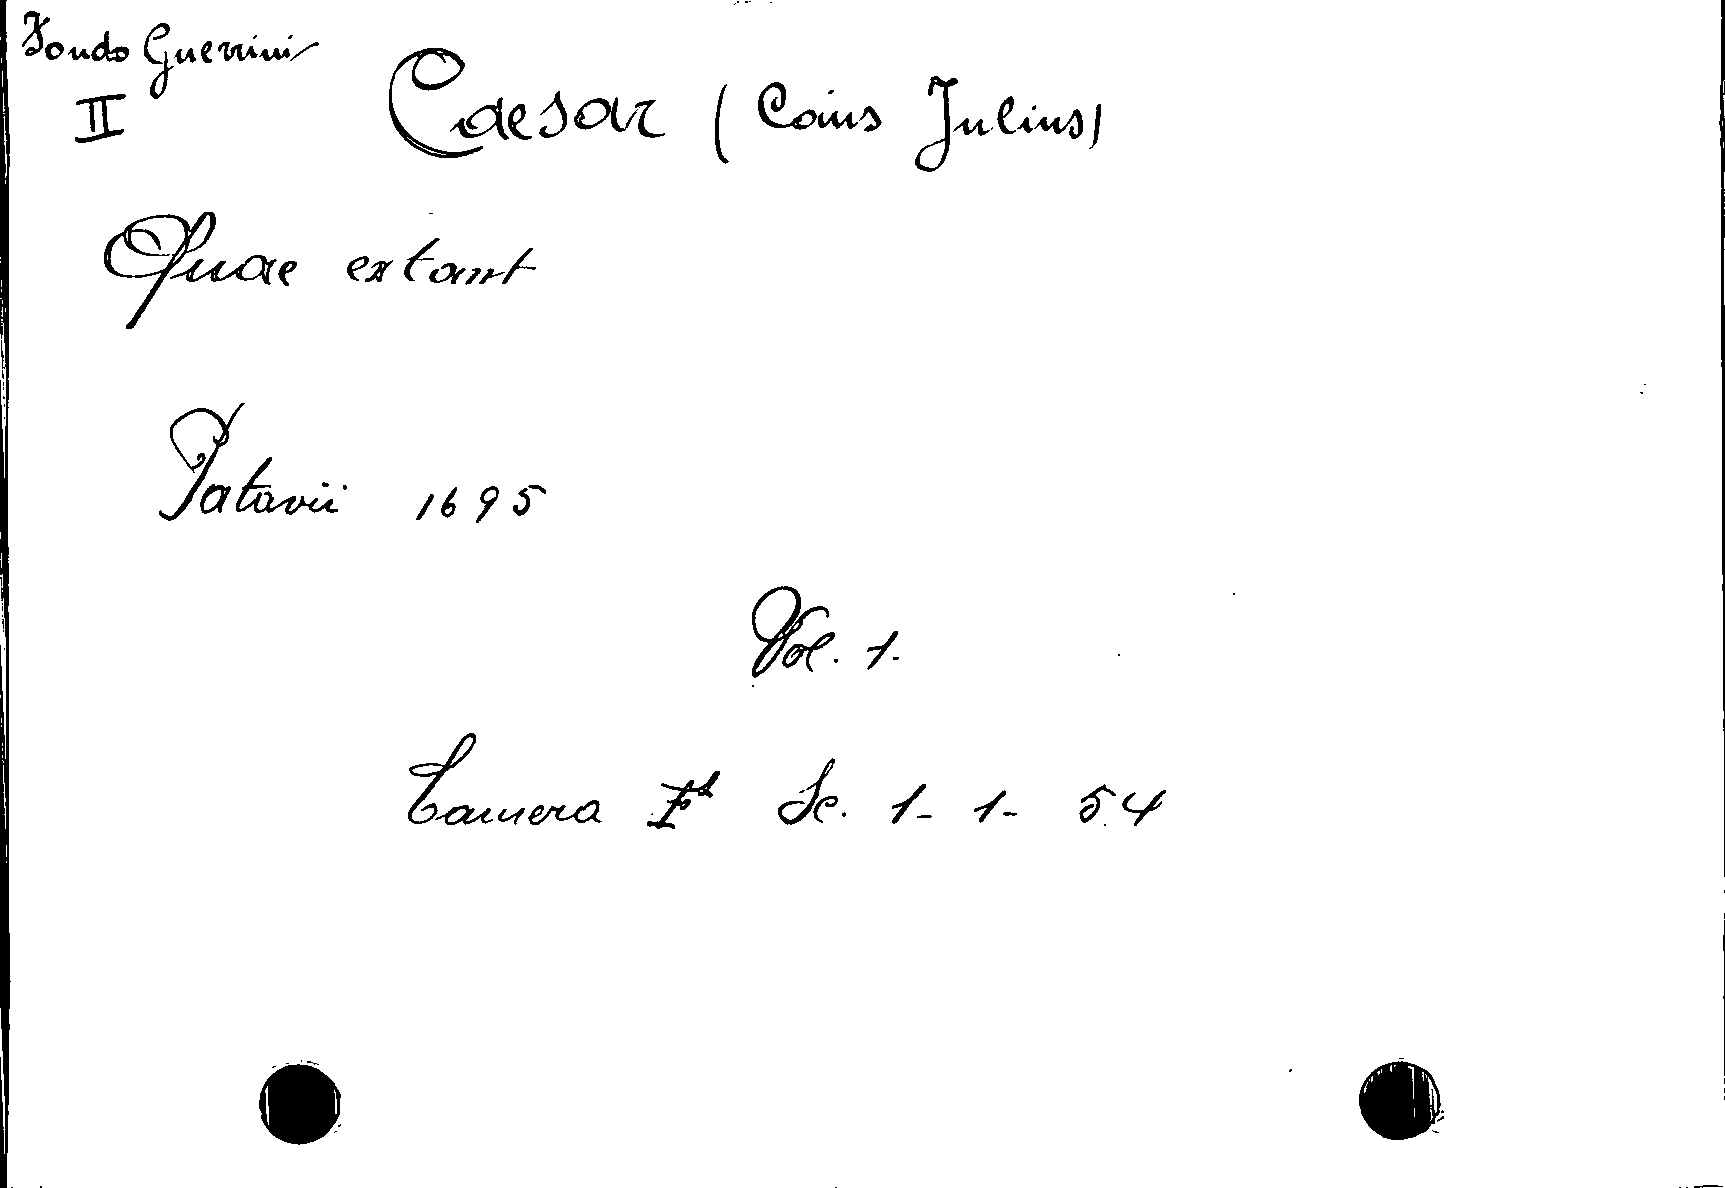 Fondo Guerrini
II Caesar (Caius Julius)
Quae extant
Patavii 1695
Vol. 1.
Camera Iª Sc. 1- 1- 54